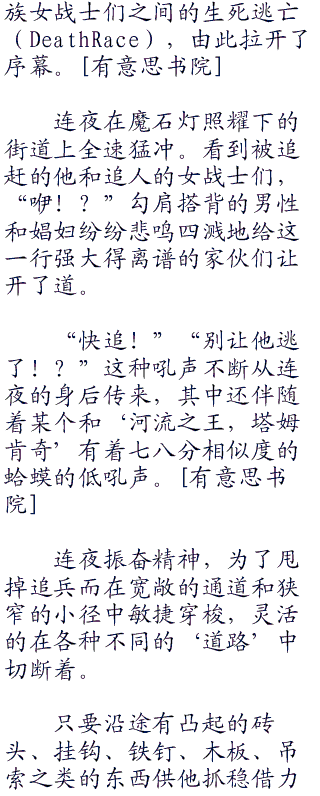 族女战士们之间的生死逃亡
（DeathRace），由此拉开了
序幕。[有意思书院]
连夜在魔石灯照耀下的
街道上全速猛冲。看到被追
赶的他和追人的女战士们，
“咿！？”勾肩搭背的男性
和娼妇纷纷悲鸣四溅地给这
一行强大得离谱的家伙们让
开了道。
“快追！”“别让他逃
了！？”这种吼声不断从连
夜的身后传来，其中还伴随
着某个和‘河流之王，塔姆
肯奇’有着七八分相似度的
蛤蟆的低吼声。[有意思书
院]
连夜振奋精神，为了甩
掉追兵而在宽敞的通道和狭
窄的小径中敏捷穿梭，灵活
的在各种不同的‘道路’中
切断着。
只要沿途有凸起的砖
头、挂钩、铁钉、木板、吊
索之类的东西供他抓稳借力